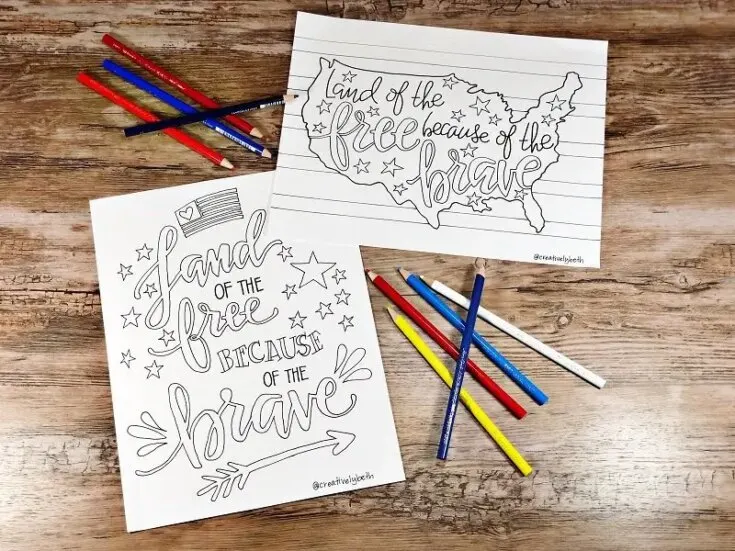 Land of the
free because of the
brave
@creativelybeth
Land
OF THE
free
BECAUSE
OF THE
brave
@creativelybeth